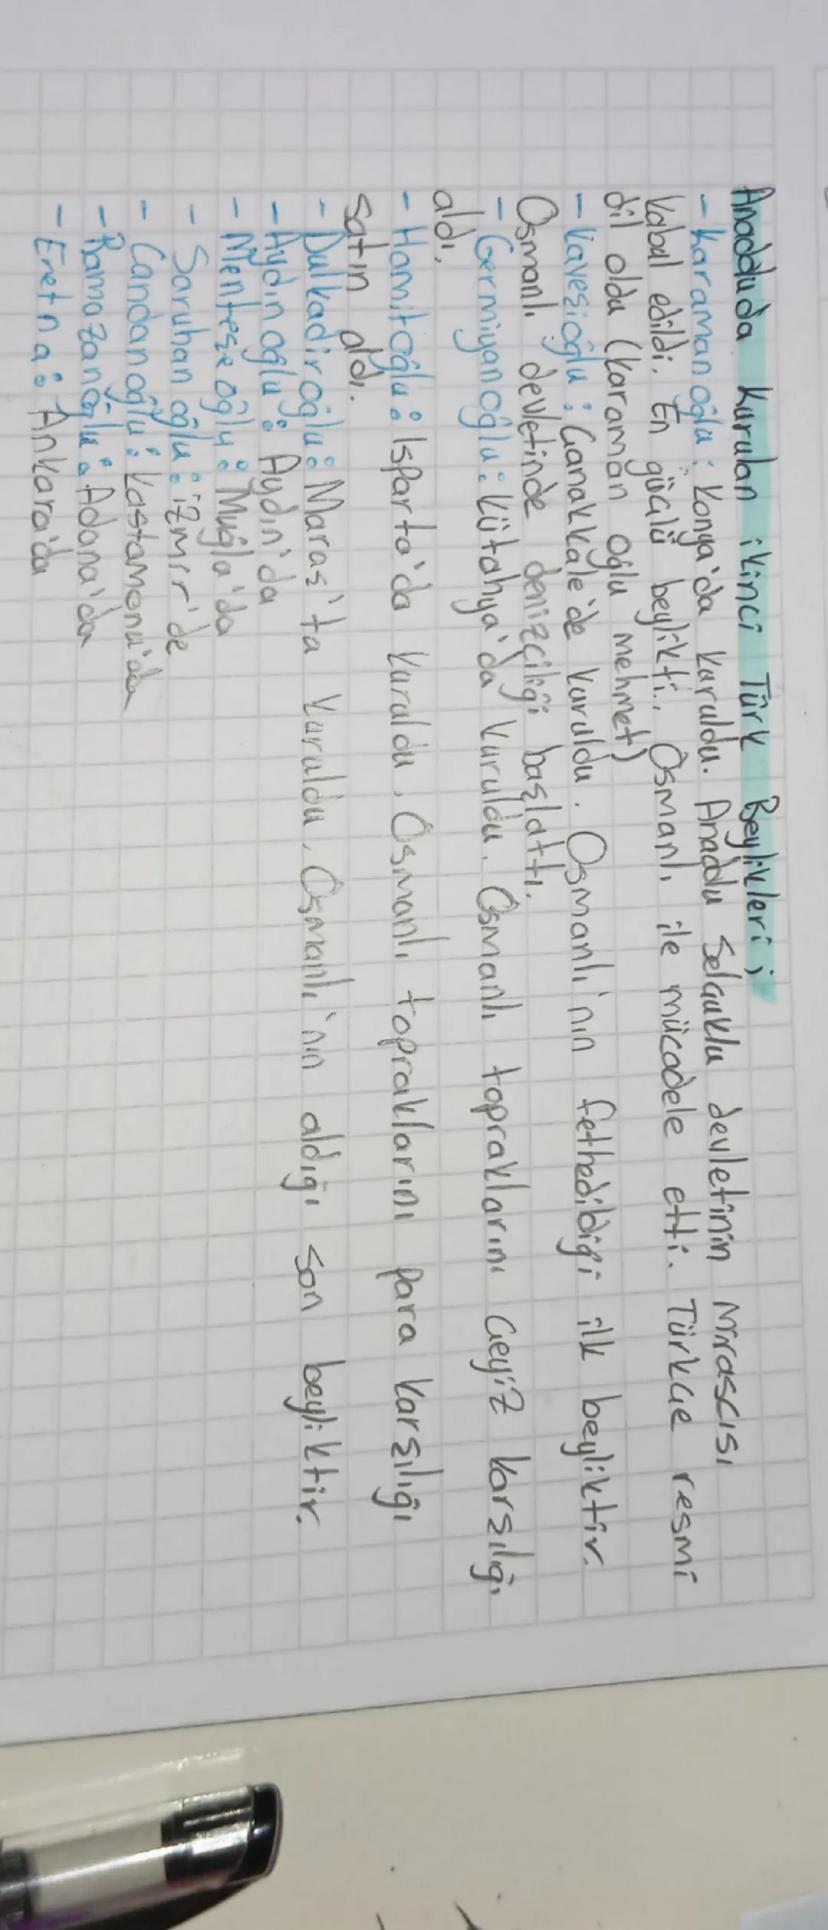 Anadoluda kurulan ikinci Türk Beylikleri;
- Karamanoğlu: Konya'da kuruldu. Anadolu Selçuklu devletinin mirascısı
kabul edildi. En güçlü beylikti. Osmanlı ile mücadele etti. Türkçe resmi
dil oldu (Karaman oğlu mehmet)
- Karesioğlu: Çanakkale'de kuruldu. Osmanlı'nın fethedildiği ilk beyliktir.
Osmanlı devletinde denizciliği başlattı.
- Germiyanoğlu: Kütahya'da kuruldu. Osmanlı topraklarını çeyiz karşılığı
aldı.
- Hamitoğlu: Isparta'da kuruldu. Osmanlı topraklarını para karşılığı
satın aldı.
- Dulkadiroğlu: Maraş'ta kuruldu. Osmanlı'nın aldığı son beyliktir.
- Aydınoğlu: Aydın'da
- Menteşeoğlu: Muğla'da
- Saruhanoğlu: izmir'de
- Candanoğlu: Kastamonu'da
- Ramazanoğlu: Adana'da
- Eretna: Ankara'da